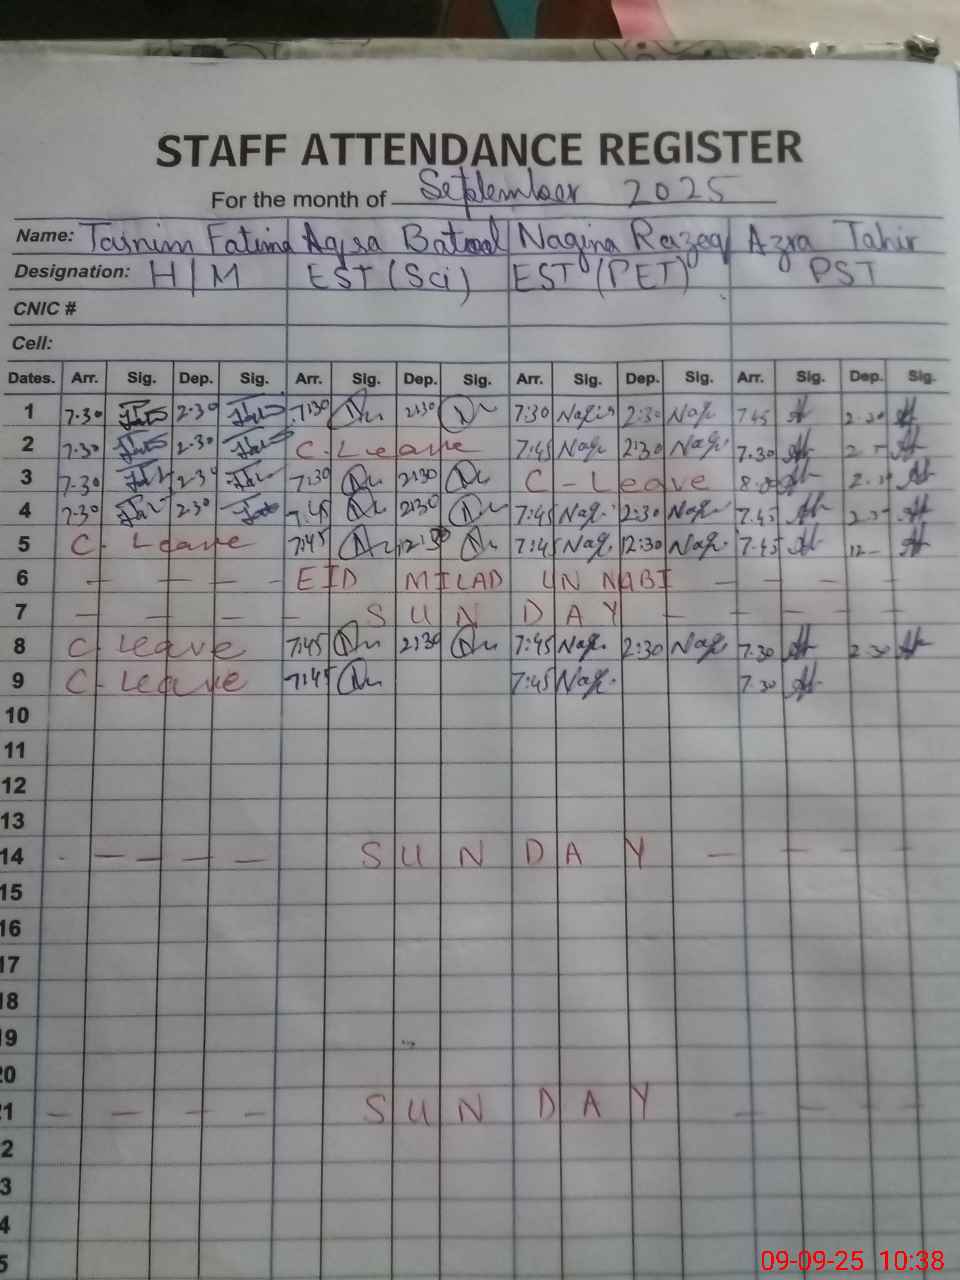 STAFF ATTENDANCE REGISTER
For the month of September 2025
Name: Tasnim Fatima Aqsa Batool Nagina Razaq Azra Tahir
Designation: H/M EST (Sci) EST (PET) PST
CNIC #
Cell:
Dates. Arr. Sig. Dep. Sig. Arr. Sig. Dep. Sig. Arr. Sig. Dep. Sig. Arr. Sig. Dep. Sig.
1 7.30 2.30 7:30 2:30 7:30 2:30 7.45 2.30
2 7.30 2.30 C. Leave 7:45 2:30 7.30
3 7.30 2.30 7:30 2:30 C - Leave 8.00
4 7.30 2.30 7.45 2:30 7:45 2:30 7.45
5 C. Leave 7:45 12:30 7:45 12:30 7.45 12-
6 - - - - EID MILAD UN NABI - - - -
7 - - - - SUNDAY - - - -
8 C. Leave 7:45 2:30 7:45 2:30 7.30 2.30
9 C. Leave 7:45 7:45 7.30
10
11
12
13
14 - - - - - SUNDAY - - - -
15
16
17
18
19
20
21 - - - - SUNDAY - - - -
2
3
4
5
09-09-25 10:38